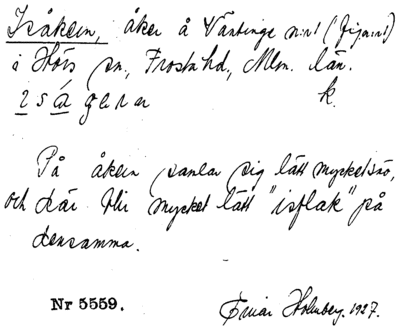 Isåkern, åker å Väntinge n:r 1 (
i Hörs sn, Frosta hd, Mlm. län.
k.
På åkern samlar sig lätt mycket snö,
och där blir mycket lätt "isflak" på
densamma.
Nr 5559.
Einar Holmberg. 1927.